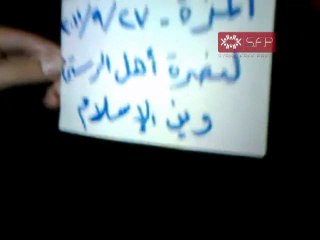 المزة - ٢٠١١/٩/٢٧
لنصرة أهل الرستن
وين الإسلام
S.F.P